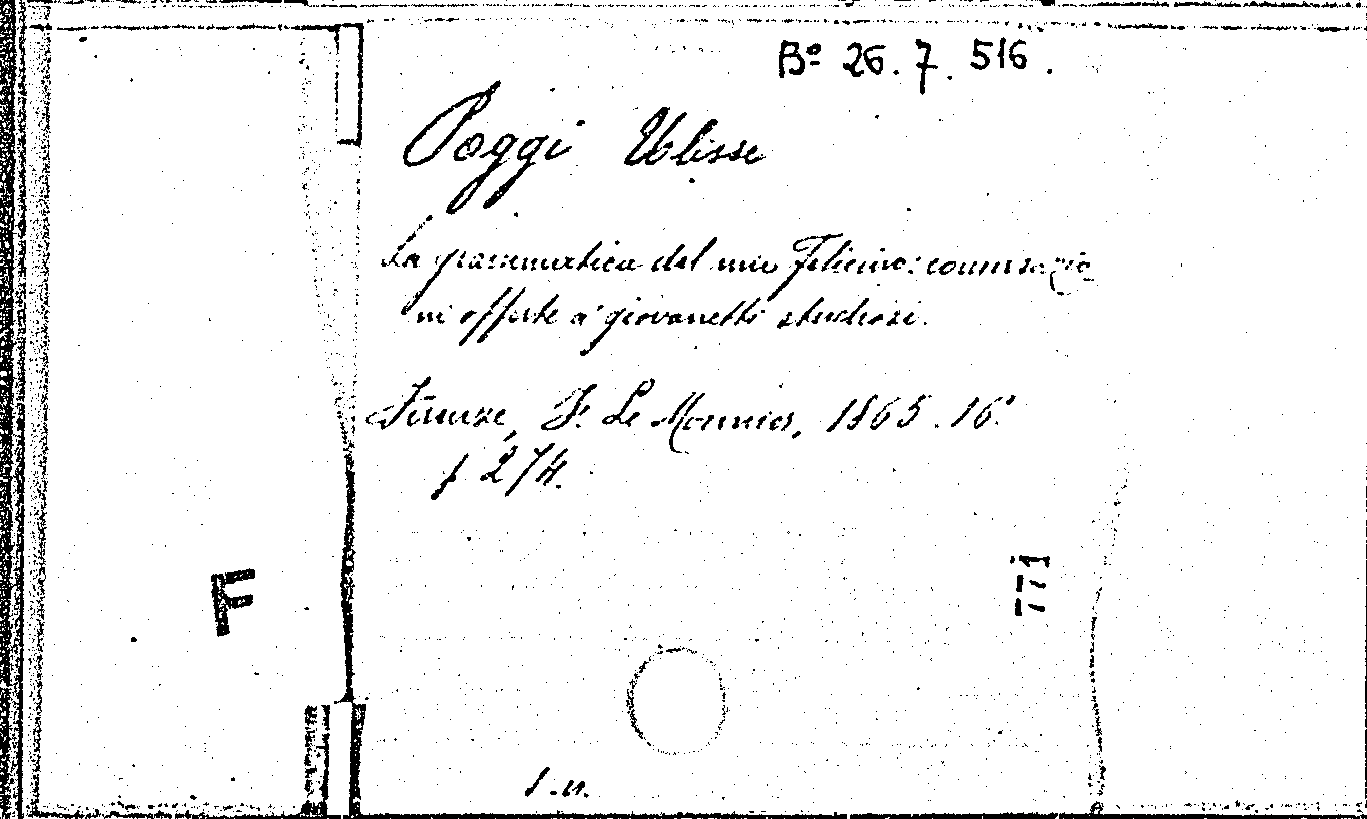 Bº 26.7.516.
Poggi Ulisse
La grammatica del mio Felicino: conversazio
ni offerte a' giovanetti studiosi.
Firenze, F. Le Monnier, 1865. 16º
p 274.
F
771